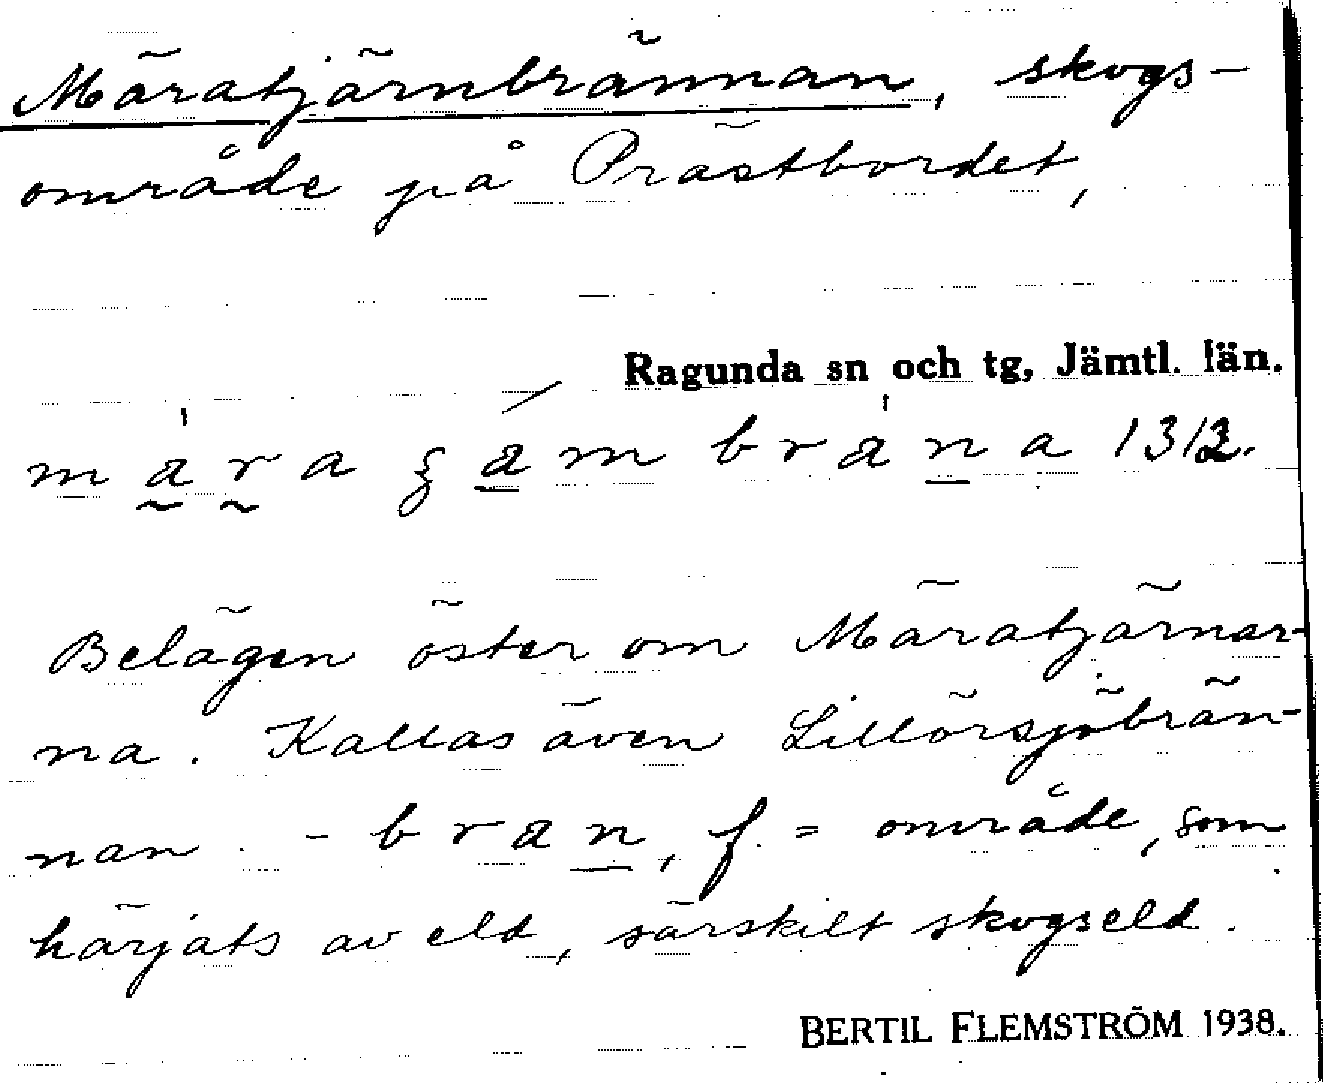 Märatjärnbrännan, skogs-
område på Prästbordet,
Ragunda sn och tg, Jämtl. län.
mära ʒäm bräna 1312.
Belägen öster om Märatjärnar-
na. Kallas även Lillörsjöbrän-
nan. - brän, f. = område, som
härjats av eld, särskilt skogseld.
BERTIL FLEMSTRÖM 1938.